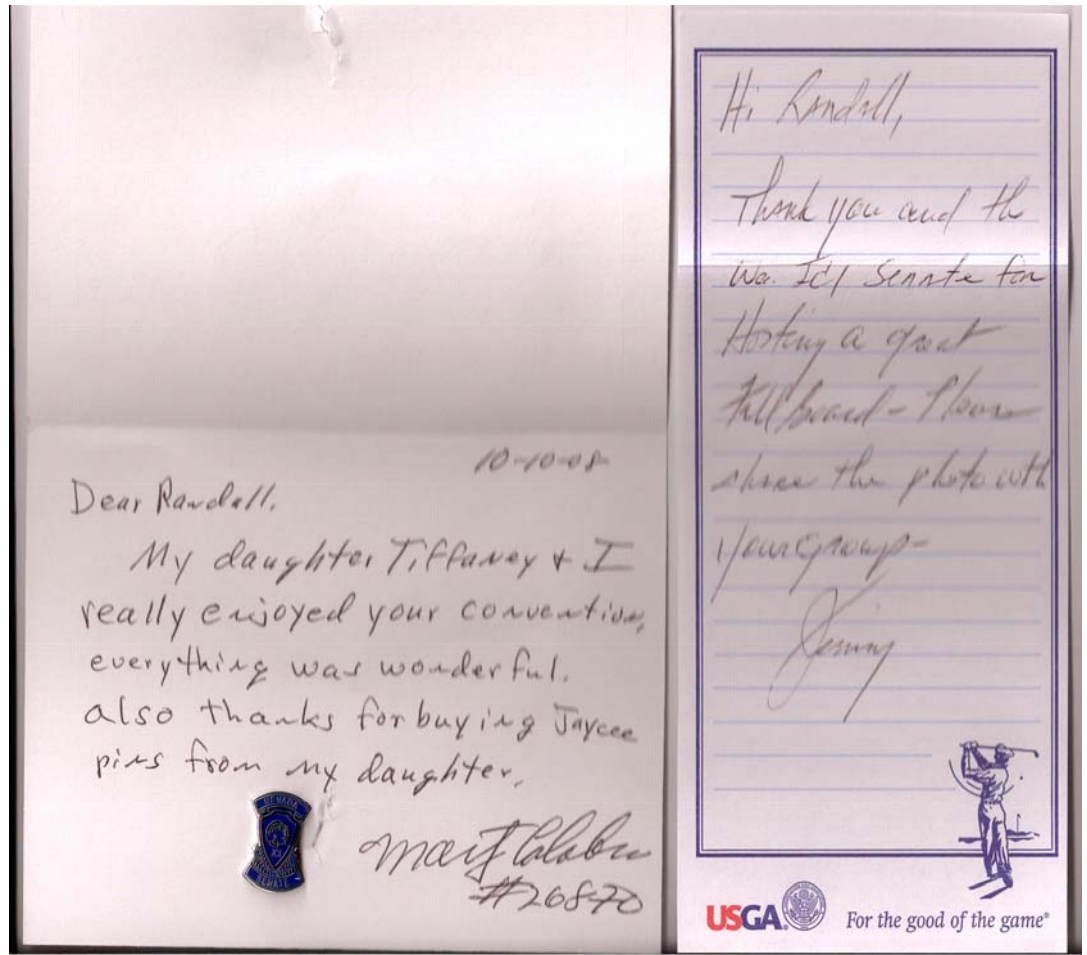 10-10-08
Dear Randall,
My daughter Tiffaney & I
really enjoyed your convention,
everything was wonderful.
also thanks for buying Jaycee
pins from my daughter.
#26870
NEVADA
SENATE
Hi Randall,
Thank you and the
Wa. JCI Senate for
Hosting a great
Fall board - Please
share the photo with
your group -
Jimmy
USGA
For the good of the game®